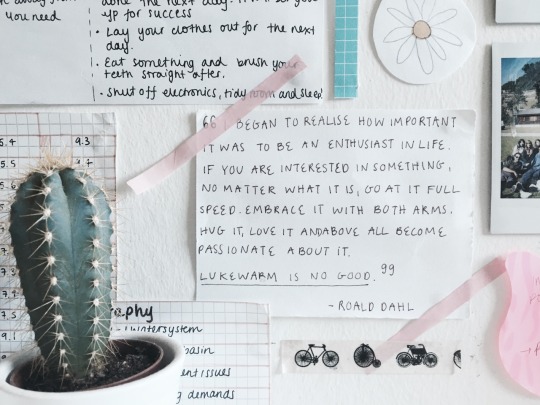 you need
up for success
• Lay your clothes out for the next
day.
• Eat something and brush your
teeth straight after.
• Shut off electronics, tidy room and sleep!
5.4 9.3
“ I BEGAN TO REALISE HOW IMPORTANT
IT WAS TO BE AN ENTHUSIAST IN LIFE.
IF YOU ARE INTERESTED IN SOMETHING,
NO MATTER WHAT IT IS, GO AT IT FULL
SPEED. EMBRACE IT WITH BOTH ARMS,
HUG IT, LOVE IT AND ABOVE ALL BECOME
PASSIONATE ABOUT IT.
LUKEWARM IS NO GOOD. ”
- ROALD DAHL
issues
demands